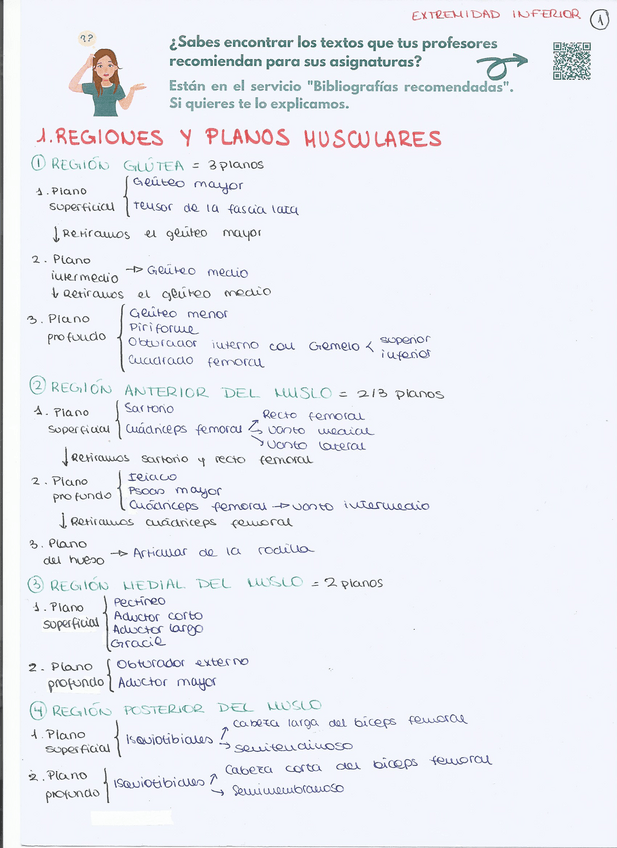 EXTREMIDAD INFERIOR 1
??
¿Sabes encontrar los textos que tus profesores
recomiendan para sus asignaturas?
Están en el servicio "Bibliografías recomendadas".
Si quieres te lo explicamos.
1. REGIONES Y PLANOS MUSCULARES
1 REGIÓN GLÚTEA = 3 planos
1. Plano superficial { Glúteo mayor
Tensor de la fascia lata
↓ Retiramos el glúteo mayor
2. Plano intermedio → Glúteo medio
↓ Retiramos el glúteo medio
3. Plano profundo { Glúteo menor
Piriforme
Obturador interno con Gemelo < superior
inferior
Cuadrado femoral
2 REGIÓN ANTERIOR DEL MUSLO = 2/3 planos
1. Plano superficial { Sartorio
Cuádriceps femoral → Recto femoral
Vasto medial
Vasto lateral
↓ Retiramos sartorio y recto femoral
2. Plano profundo { Ilíaco
Psoas mayor
Cuádriceps femoral → vasto intermedio
↓ Retiramos cuádriceps femoral
3. Plano del hueso → Articular de la rodilla
3 REGIÓN MEDIAL DEL MUSLO = 2 planos
1. Plano superficial { Pectíneo
Aductor corto
Aductor largo
Gracil
2. Plano profundo { Obturador externo
Aductor mayor
4 REGIÓN POSTERIOR DEL MUSLO
1. Plano superficial { Isquiotibiales → Cabeza larga del bíceps femoral
→ Semitendinoso
2. Plano profundo { Isquiotibiales → Cabeza corta del bíceps femoral
→ Semimembranoso